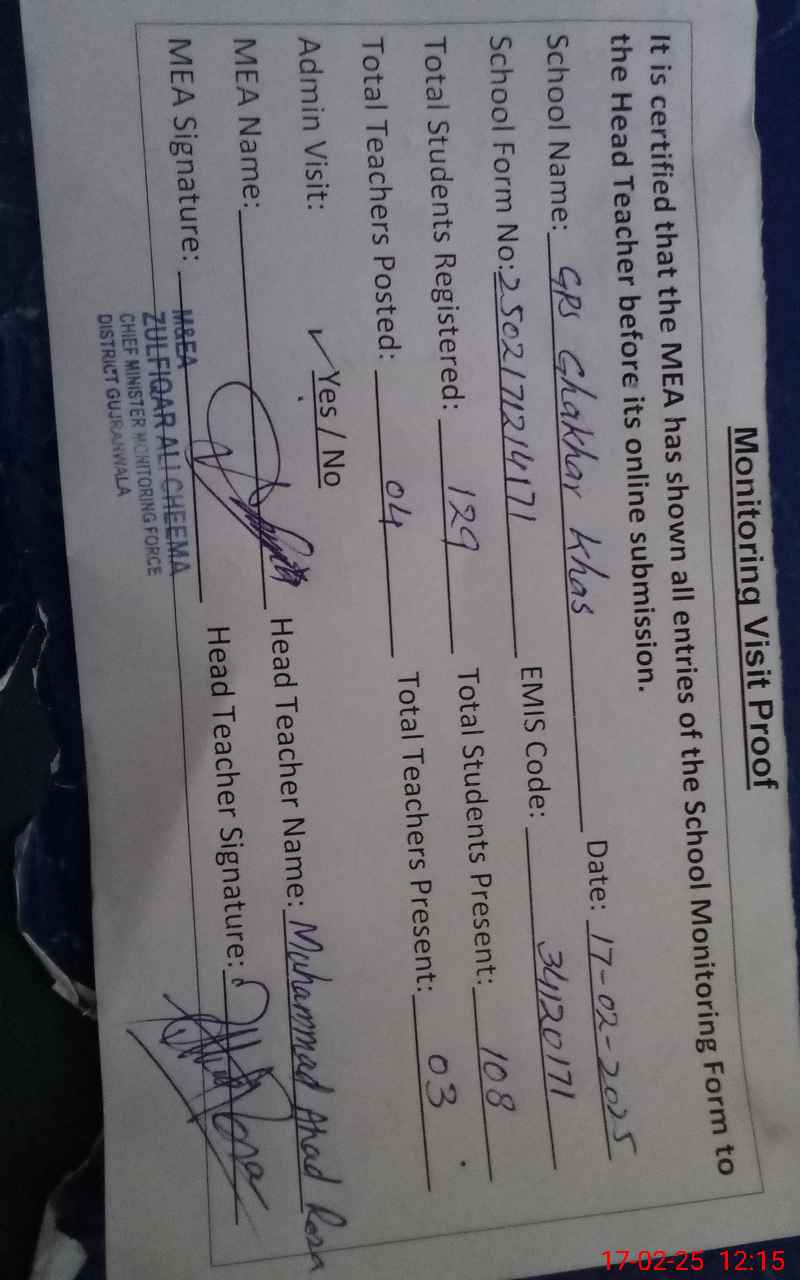 Monitoring Visit Proof
It is certified that the MEA has shown all entries of the School Monitoring Form to
the Head Teacher before its online submission.
School Name: GPS Ghakhar Khas Date: 17-02-2025
School Form No: 2502171214171 EMIS Code: 34120171
Total Students Registered: 129 Total Students Present: 108
Total Teachers Posted: 04 Total Teachers Present: 03
Admin Visit: ✓ Yes / No
MEA Name: Head Teacher Name: Muhammad Ahad Roza
MEA Signature: Head Teacher Signature:
M&EA
ZULFIQAR ALI CHEEMA
CHIEF MINISTER MONITORING FORCE
DISTRICT GUJRANWALA
17-02-25 12:15